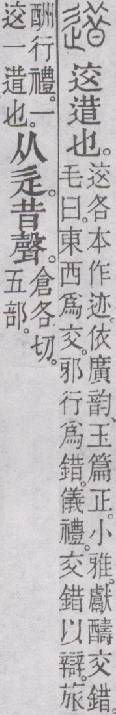 逪䢒逪也。
䢒各本作迹。依廣韵、玉篇正。小雅。獻醻交錯。
毛曰。東西爲交。邪行爲錯。儀禮。交錯以辯。旅
酬行禮。一
䢒一逪也。
从辵。昔聲。
倉各切。
五部。